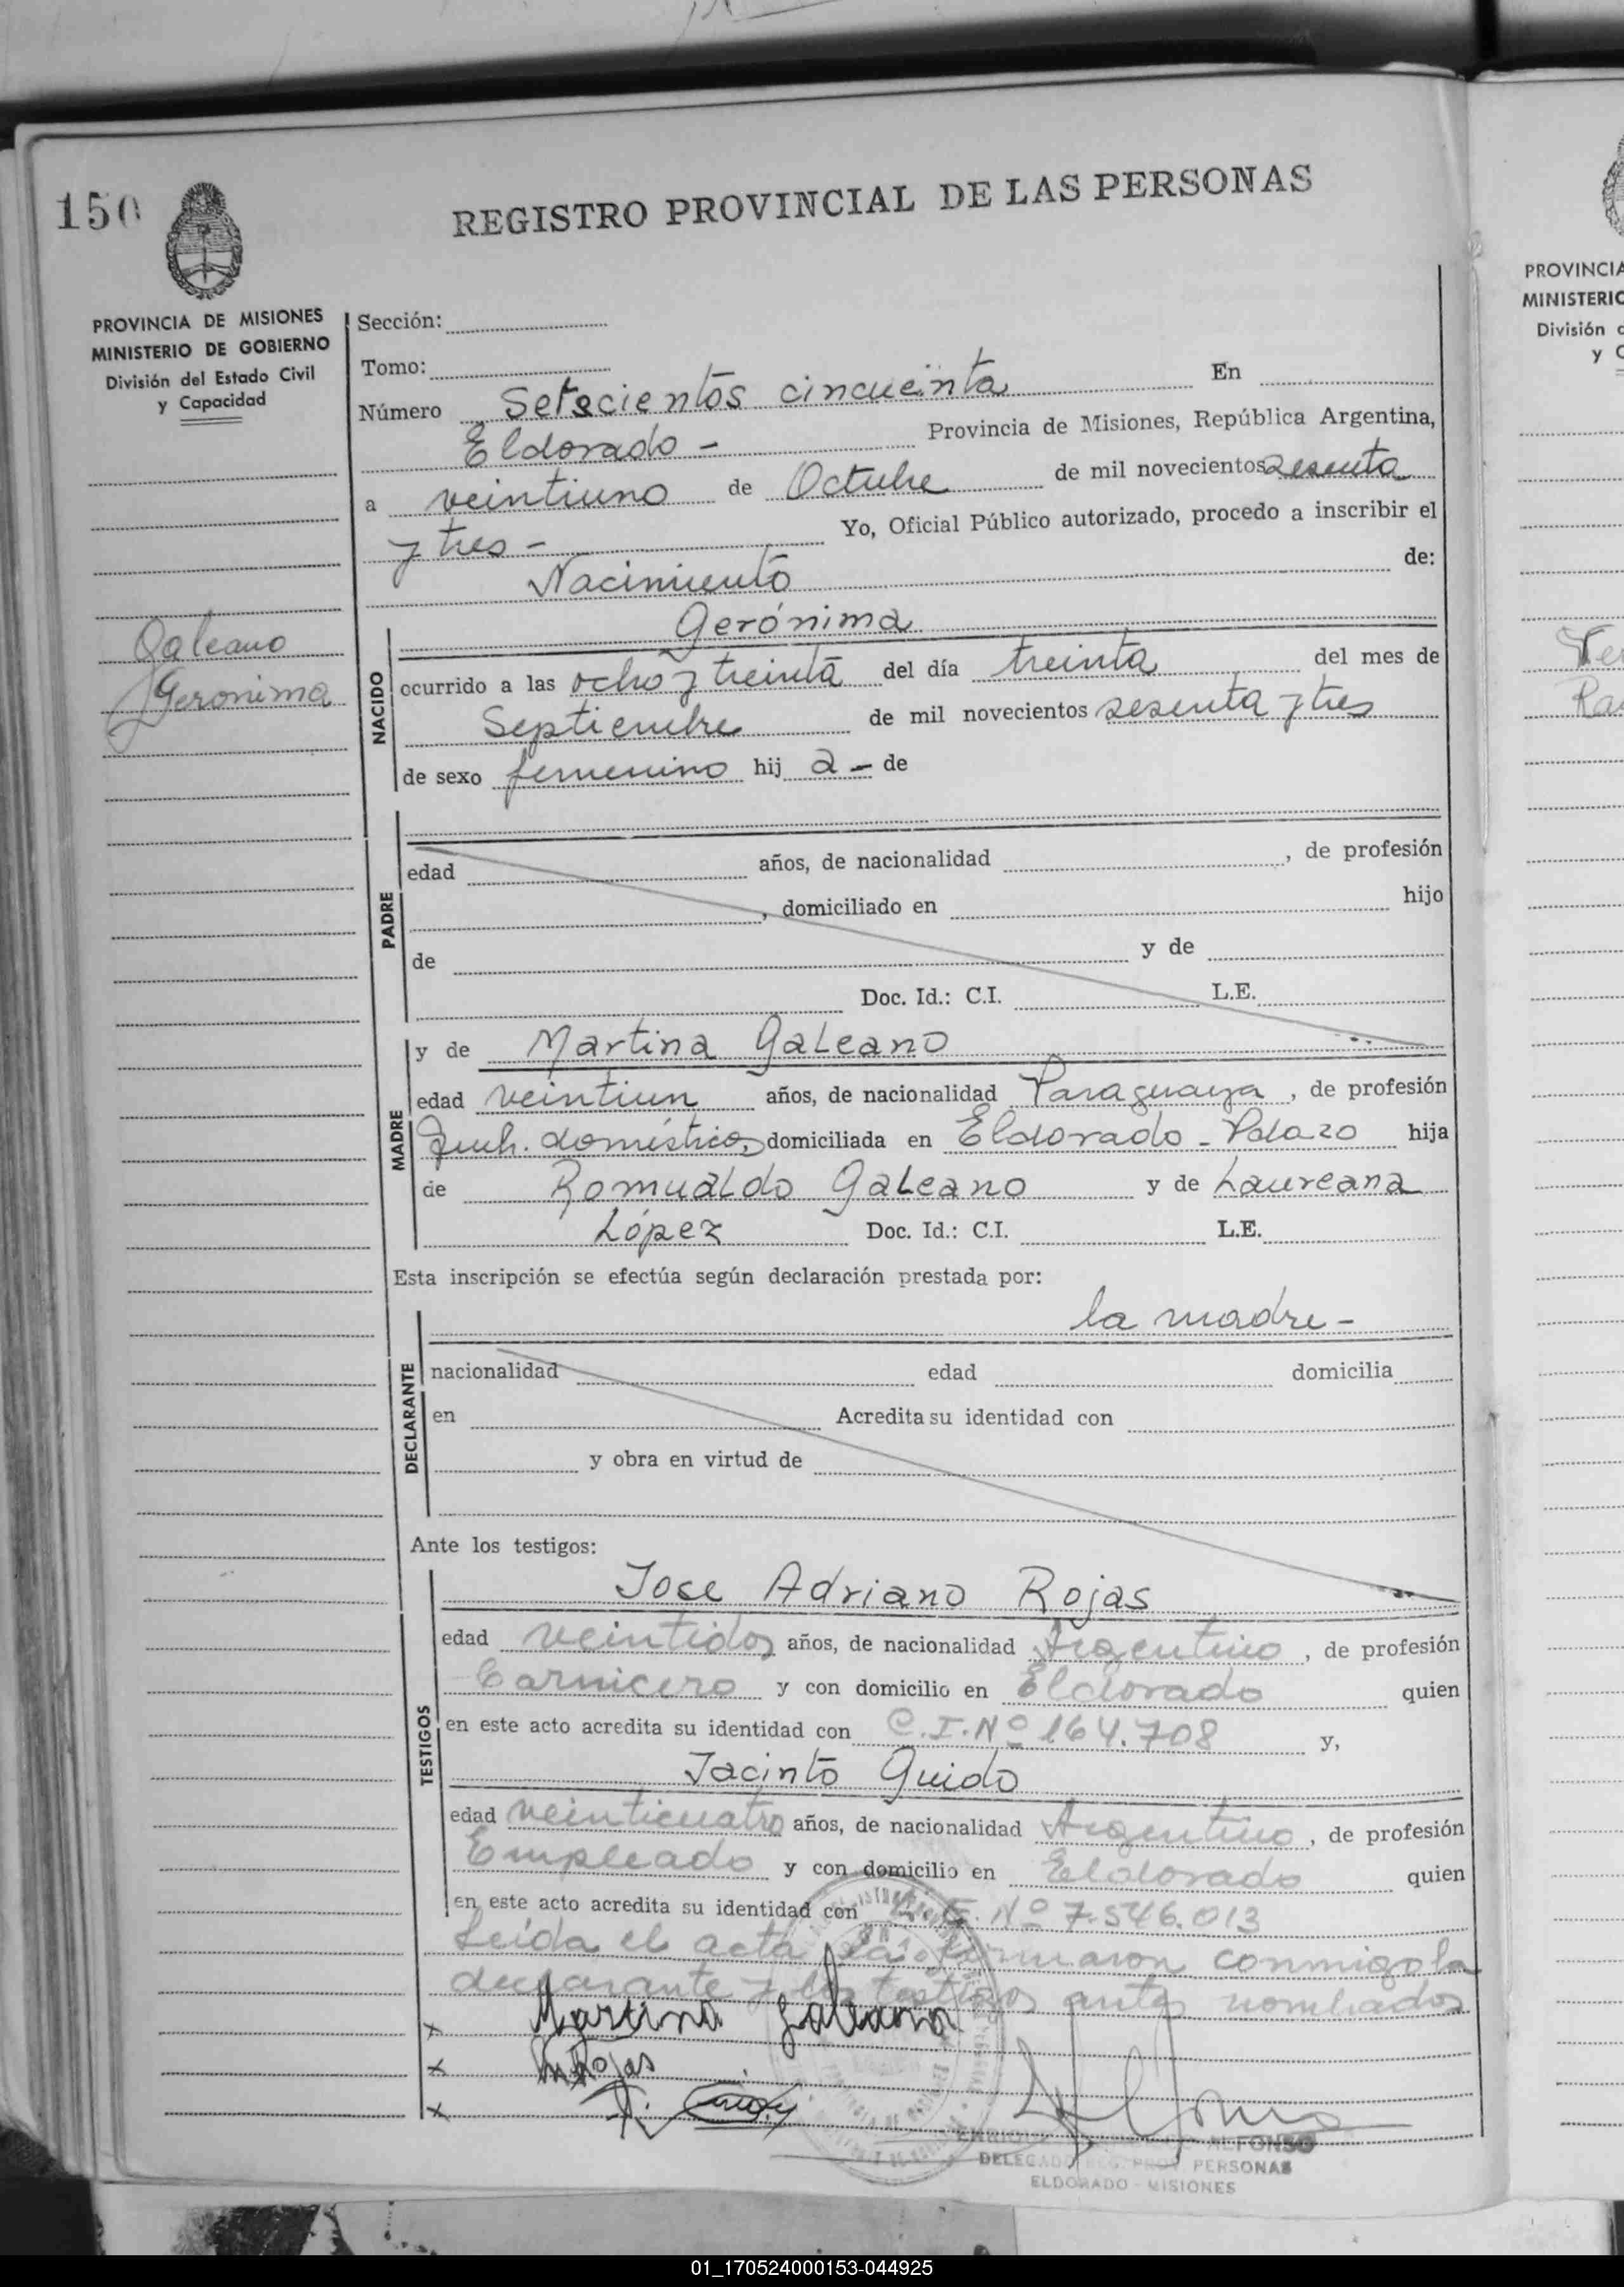 150
REGISTRO PROVINCIAL DE LAS PERSONAS
PROVINCIA DE MISIONES
MINISTERIO DE GOBIERNO
División del Estado Civil
y Capacidad
Galeano
Geronima
Sección:
Tomo:
Número Setecientos cincuenta En
Eldorado - Provincia de Misiones, República Argentina,
a veintiuno de Octubre de mil novecientos sesenta
y tres - Yo, Oficial Público autorizado, procedo a inscribir el
Nacimiento de:
Gerónima
NACIDO
ocurrido a las ocho y treinta del día treinta del mes de
Septiembre de mil novecientos sesenta y tres
de sexo femenino hij a - de
PADRE
edad años, de nacionalidad , de profesión
, domiciliado en hijo
de y de
Doc. Id.: C.I. L.E.
MADRE
y de Martina Galeano
edad veintiun años, de nacionalidad Paraguaya, de profesión
domiciliada en Eldorado - hija
de Romualdo Galeano y de Laureana
López Doc. Id.: C.I. L.E.
Esta inscripción se efectúa según declaración prestada por:
la madre -
DECLARANTE
nacionalidad edad domicilia
en Acredita su identidad con
y obra en virtud de
Ante los testigos:
TESTIGOS
Jose Adriano Rojas
edad veintidos años, de nacionalidad Argentino, de profesión
Carnicero y con domicilio en Eldorado quien
en este acto acredita su identidad con C.I. Nº 164.708 y,
Jacinto Guido
edad veinticuatro años, de nacionalidad Argentino, de profesión
Empleado y con domicilio en Eldorado quien
en este acto acredita su identidad con Nº 7.546.013
Leída el acta la firmaron conmigo la
declarante y los testigos antes nombrados
x Martina Galeano
x Rojas
x
ALFONSO
DELEGADO REG. PROV. PERSONAS
ELDORADO - MISIONES
PROVINCIA
MINISTERIO
División
y
01_170524000153-044925